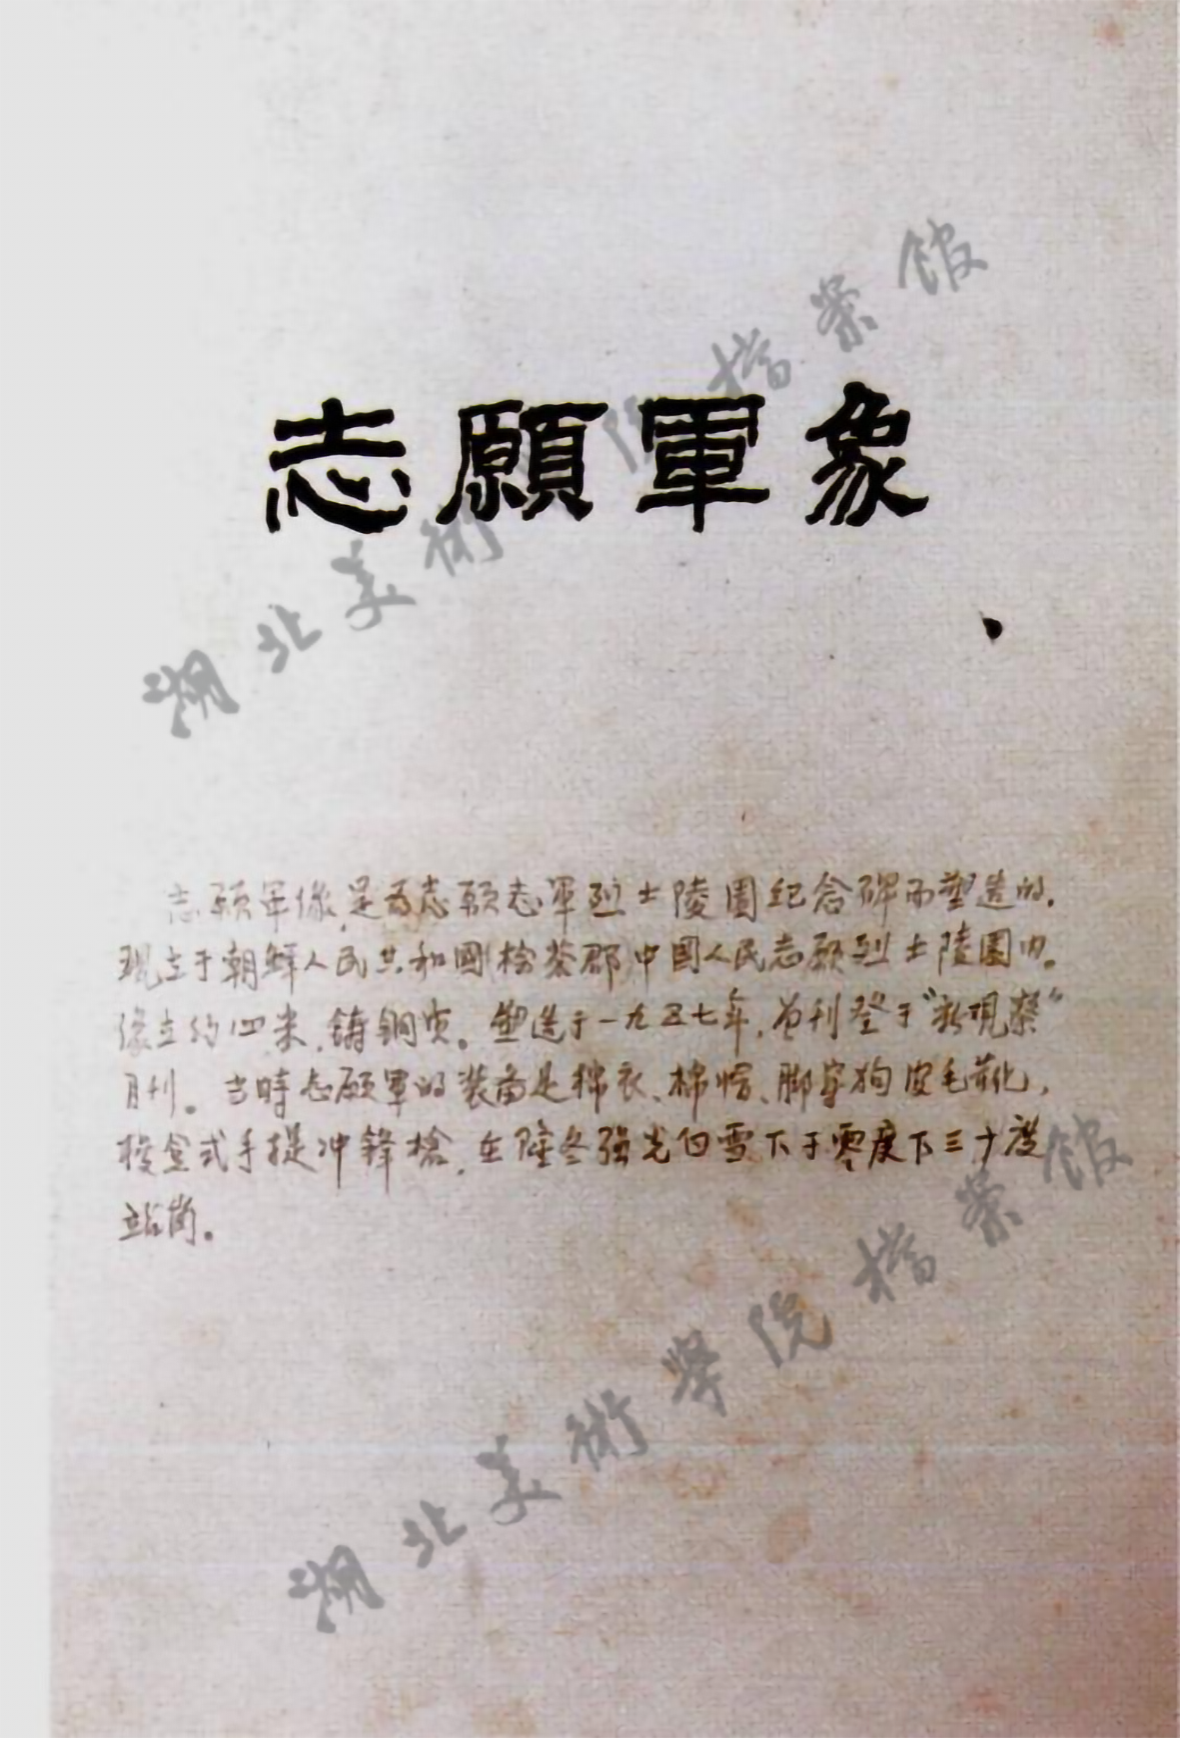 志願軍象
志願軍像,是为志願志軍烈士陵園紀念碑而塑造的,
现立于朝鲜人民共和國桧苍郡中國人民志願烈士陵園内。
像立约四米,铸铜质。塑造于一九五七年,曾刊登于“新观察”
月刊。当時志願軍的装备是棉衣、棉帽、脚穿狗皮毛靴,
梭盒式手提冲鋒槍,在隆冬强光白雪下于零度下三十度
站崗。
湖北美術学院档案館
湖北美術学院档案館